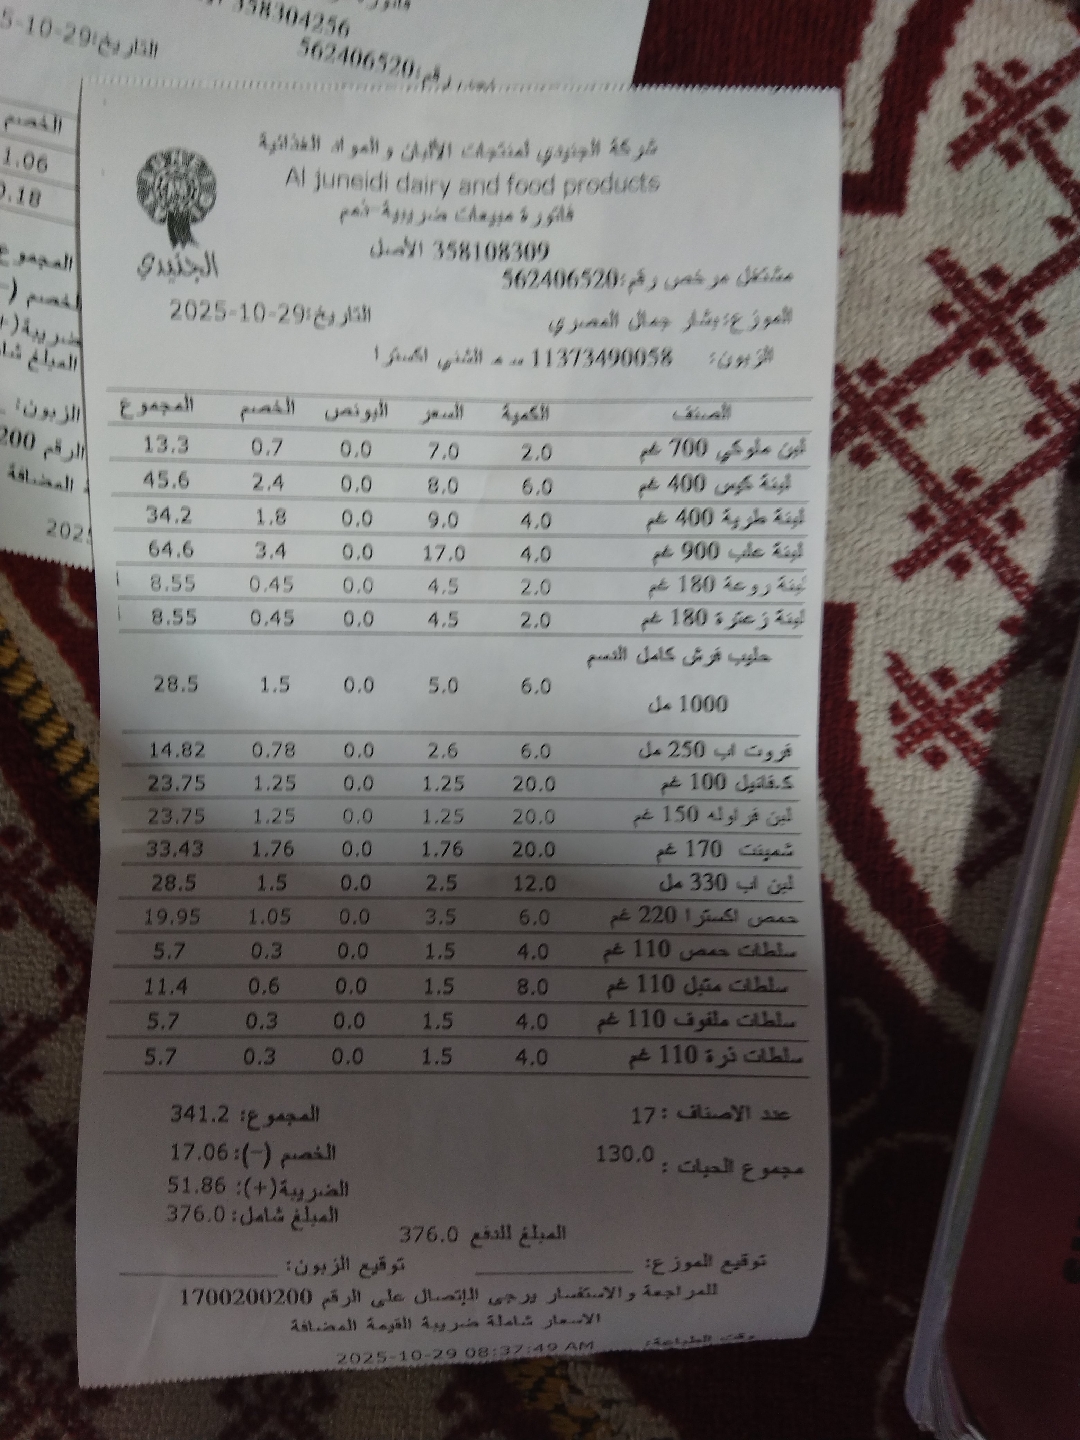 358304256
562406520:رقم
التاريخ:29-10-5
الخصم
1.06
0.18
المجموع
الخصم (-
ضريبة(+
المبلغ شامل
الزبون:
الرقم 200
المضافة
202
شركة الجنيدي لمنتجات الألبان و المواد الغذائية
Al juneidi dairy and food products
فاتورة مبيعات ضريبية-ذمم
358108309 الأصل
الجنيدي
مشتغل مرخص رقم:562406520
الموزع:بشار جمال المصري التاريخ:2025-10-29
الزبون: 11373490058 س م الشني اكسترا
الصنف الكمية السعر البونص الخصم المجموع
لبن ملوكي 700 غم 2.0 7.0 0.0 0.7 13.3
لبنة كيس 400 غم 6.0 8.0 0.0 2.4 45.6
لبنة طرية 400 غم 4.0 9.0 0.0 1.8 34.2
لبنة علب 900 غم 4.0 17.0 0.0 3.4 64.6
لبنة روعة 180 غم 2.0 4.5 0.0 0.45 8.55
لبنة زعترة 180 غم 2.0 4.5 0.0 0.45 8.55
حليب فرش كامل الدسم
1000 مل 6.0 5.0 0.0 1.5 28.5
فروت اب 250 مل 6.0 2.6 0.0 0.78 14.82
ك.فانيل 100 غم 20.0 1.25 0.0 1.25 23.75
لبن فراوله 150 غم 20.0 1.25 0.0 1.25 23.75
شمينت 170 غم 20.0 1.76 0.0 1.76 33.43
لبن اب 330 مل 12.0 2.5 0.0 1.5 28.5
حمص اكسترا 220 غم 6.0 3.5 0.0 1.05 19.95
سلطات حمص 110 غم 4.0 1.5 0.0 0.3 5.7
سلطات متبل 110 غم 8.0 1.5 0.0 0.6 11.4
سلطات ملفوف 110 غم 4.0 1.5 0.0 0.3 5.7
سلطات ذرة 110 غم 4.0 1.5 0.0 0.3 5.7
عدد الاصناف : 17 المجموع: 341.2
مجموع الحبات : 130.0 الخصم (-):17.06
الضريبة(+): 51.86
المبلغ شامل: 376.0
المبلغ للدفع 376.0
توقيع الموزع: توقيع الزبون:
للمراجعة والاستفسار يرجى الإتصال على الرقم 1700200200
الاسعار شاملة ضريبة القيمة المضافة
وقت الطباعة: 2025-10-29 08:37:49 AM